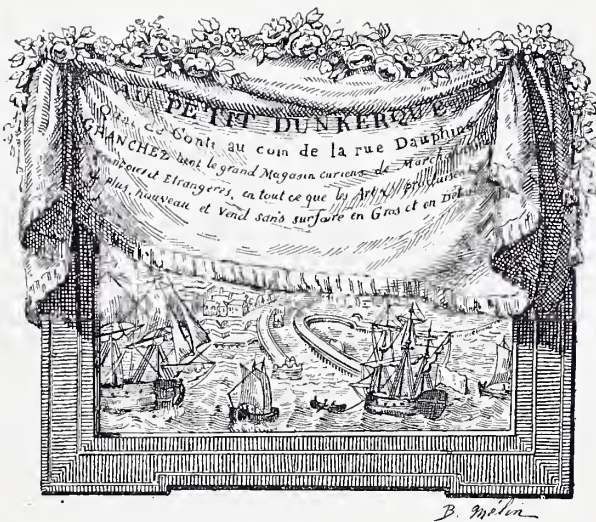 AU PETIT DUNKERQUE
Quai de Conti au coin de la rue Dauphine
GRANCHEZ tient le grand Magasin curieux de March
et Etrangeres, en tout ce que les Arts produisent
plus nouveau et Vend sans surfaire en Gros et en Detail
B. Mélin